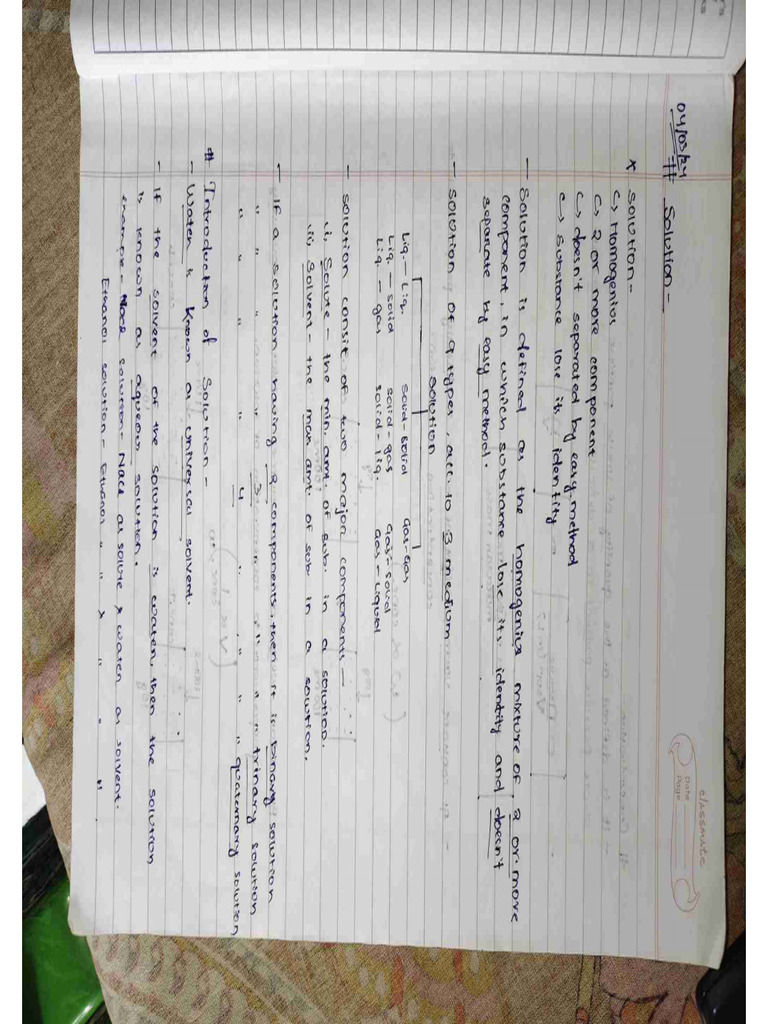 classmate
Date
Page
04/03/24
# Solution -
* Solution -
↳ Homogenius
↳ 2 or more component
↳ doesn't separated by easy method
↳ substance lose its identity
- Solution is defined as the homogenius mixture of 2 or more
component, in which substance lose its identity and doesn't
separate by easy method.
- Solution of 9 types, acc. to 3 medium
Solution
Liq. - Liq. Solid - Solid Gas - Gas
Liq. - Solid Solid - gas Gas - Solid
Liq. - gas Solid - Liq. Gas - Liquid
- Solution consit of two major components -
i, Solute - the min. amt. of sub. in a solution.
ii, Solvent - the max amt. of sub in a solution.
- If a solution having 2 components, then it is binary solution
" " " " 3 " " " " trinary solution
" " " " 4 " " " " quaternary solution
# Introduction of Solution -
- Water is known as universal solvent.
- If the solvent of the solution is water, then the solution
is known as aqueous solution.
example - Nacl solution - Nacl as solute & water as solvent.
Ethanol solution - Ethanol " " & " " "